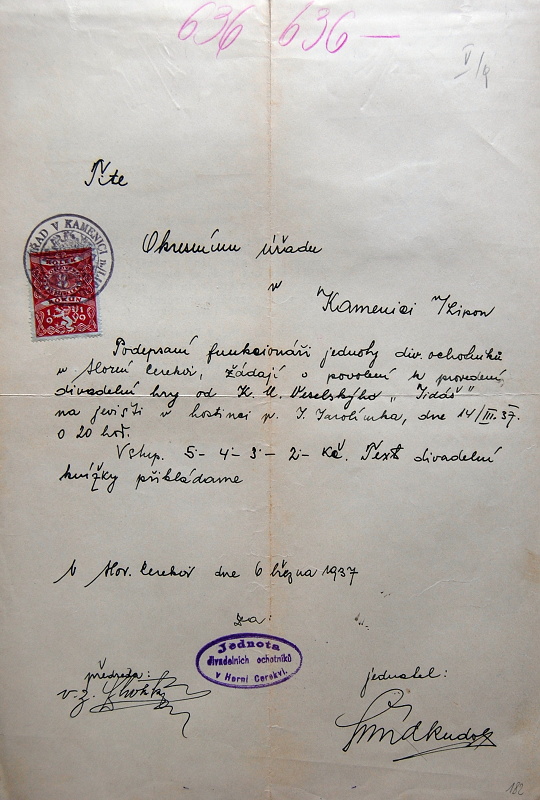 636 636 —
V/4
Tite
Okresnímu úřadu
v
Kamenici n/Lipou
Podepsaní funkcionáři jednoty div. ochotníků
v Horní Cerekvi, žádají o povolení k provedení
divadelní hry od K. M. Veselského „Jidáš“
na jevišti v hostinci p. J. Jarolímka, dne 14/III.37.
o 20 hod.
Vstup. 5- 4- 3- 2- Kč. Text divadelní
knížky přikládáme
V Hor. Cerekvi dne 6 března 1937
za:
Jednota
divadelních ochotníků
v Horní Cerekvi.
předseda:
v. z.
jednatel:
Rudolf
ÚŘAD V KAMENICI n./L.
KOLEK
KORUN
182